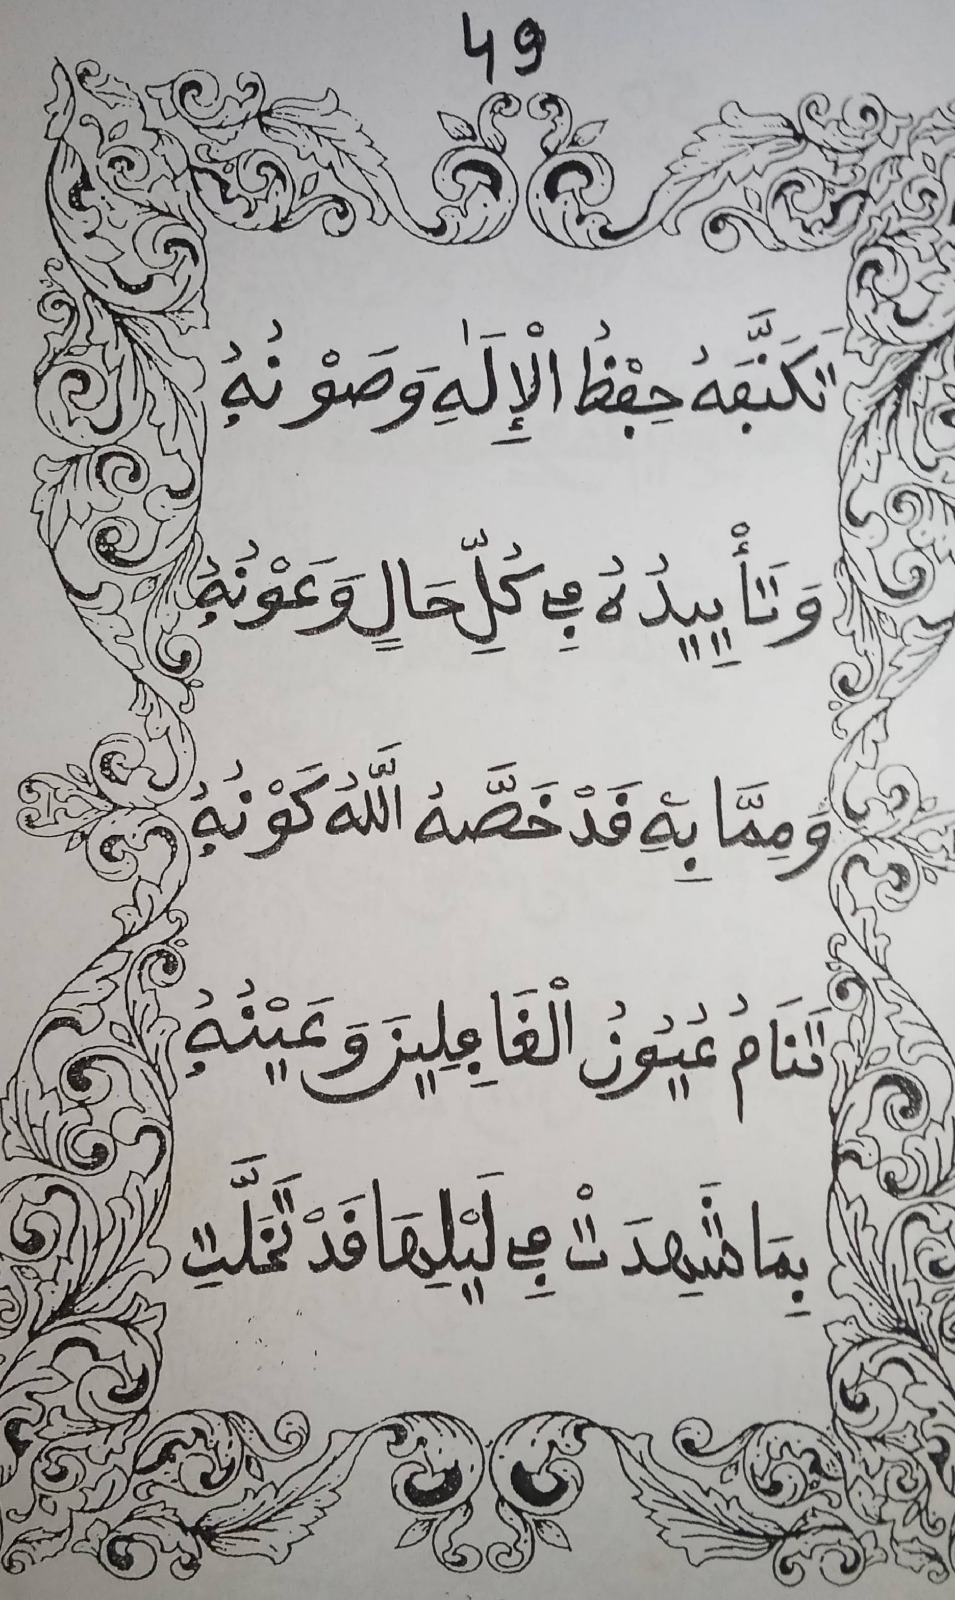 49
تَكَنَّفَهُ حِفْظُ الْإِلَٰهِ وَصَوْنُهُ
وَتَأْيِيدُهُ فِي كُلِّ حَالٍ وَعَوْنُهُ
وَمِمَّا بِهِ قَدْ خَصَّهُ اللَّهُ كَوْنُهُ
تَنَامُ عُيُونُ الْغَافِلِينَ وَعَيْنُهُ
بِمَا شَهِدَتْ فِي لَيْلِهَا قَدْ تَحَلَّتِ